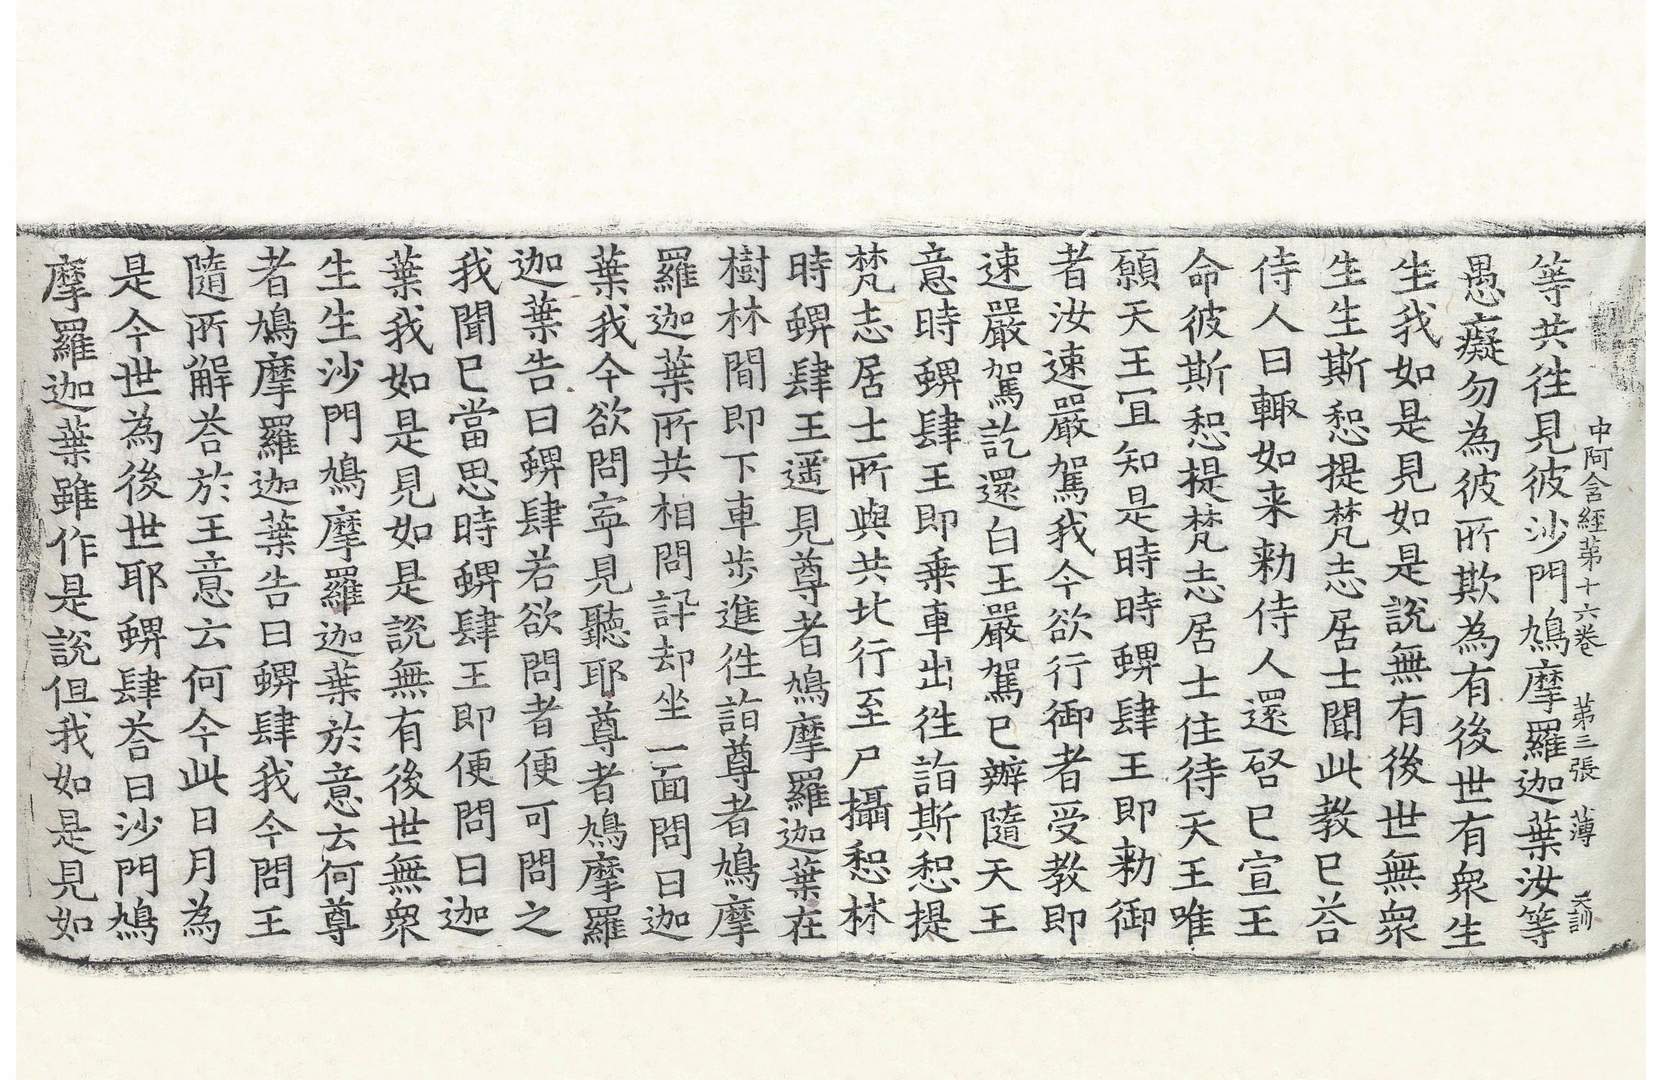 中阿含經苐十六卷 苐三張 薄 天訓
等共往見彼沙門鳩摩羅迦葉汝等
愚癡勿為彼所欺為有後世有衆生
生我如是見如是說無有後世無衆
生生斯惒提梵志居士聞此教已荅
侍人曰輙如来勑侍人還啓已宣王
命彼斯惒提梵志居士住待天王唯
願天王宜知是時時蜱肆王即勑御
者汝速嚴駕我今欲行御者受教即
速嚴駕訖還白王嚴駕已辦隨天王
意時蜱肆王即乗車出往詣斯惒提
梵志居士所與共北行至尸攝惒林
時蜱肆王遥見尊者鳩摩羅迦葉在
樹林間即下車步進往詣尊者鳩摩
羅迦葉所共相問訊却坐一面問曰迦
葉我今欲問寧見聽耶尊者鳩摩羅
迦葉告曰蜱肆若欲問者便可問之
我聞已當思時蜱肆王即便問曰迦
葉我如是見如是說無有後世無衆
生生沙門鳩摩羅迦葉於意云何尊
者鳩摩羅迦葉告曰蜱肆我今問王
隨所解荅於王意云何今此日月為
是今世為後世耶蜱肆荅曰沙門鳩
摩羅迦葉雖作是說但我如是見如